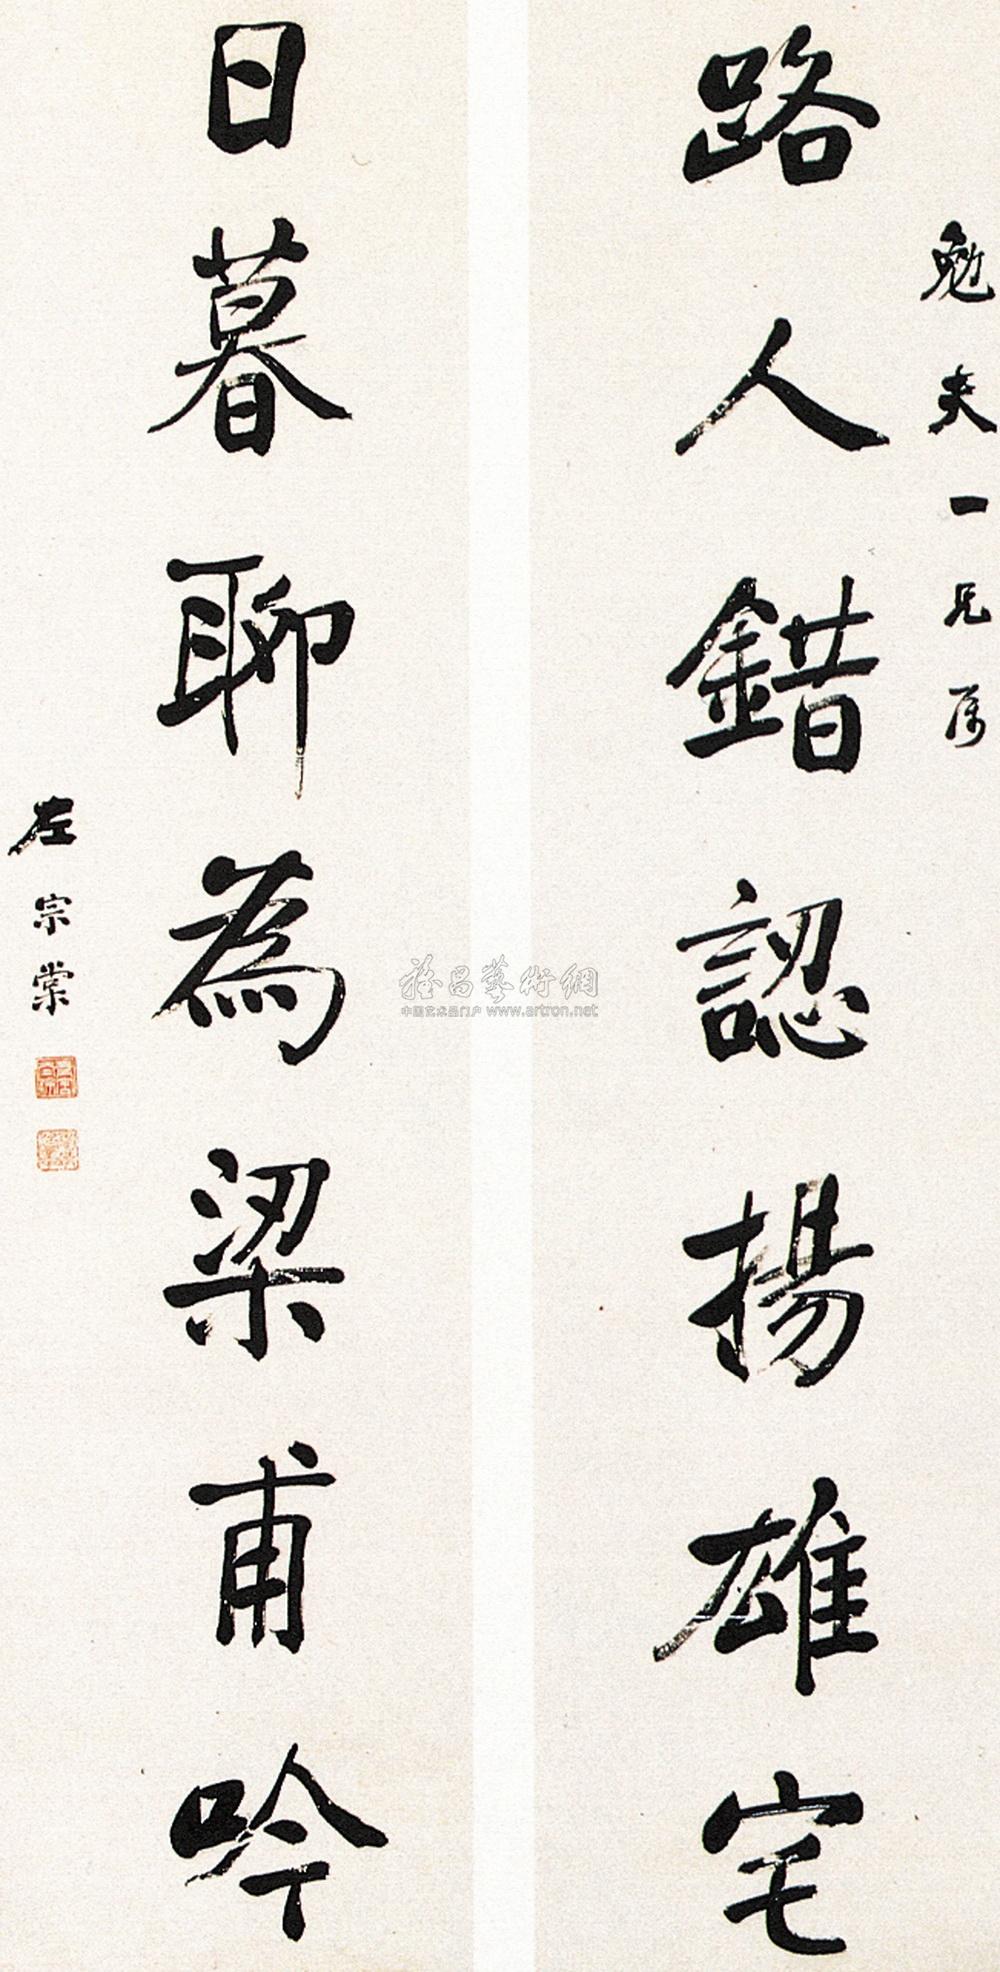 勉夫一兄属
路人錯認揚雄宅
日暮聊為梁甫吟
左宗棠
雅昌藝術網
中国艺术品门户 www.artron.net